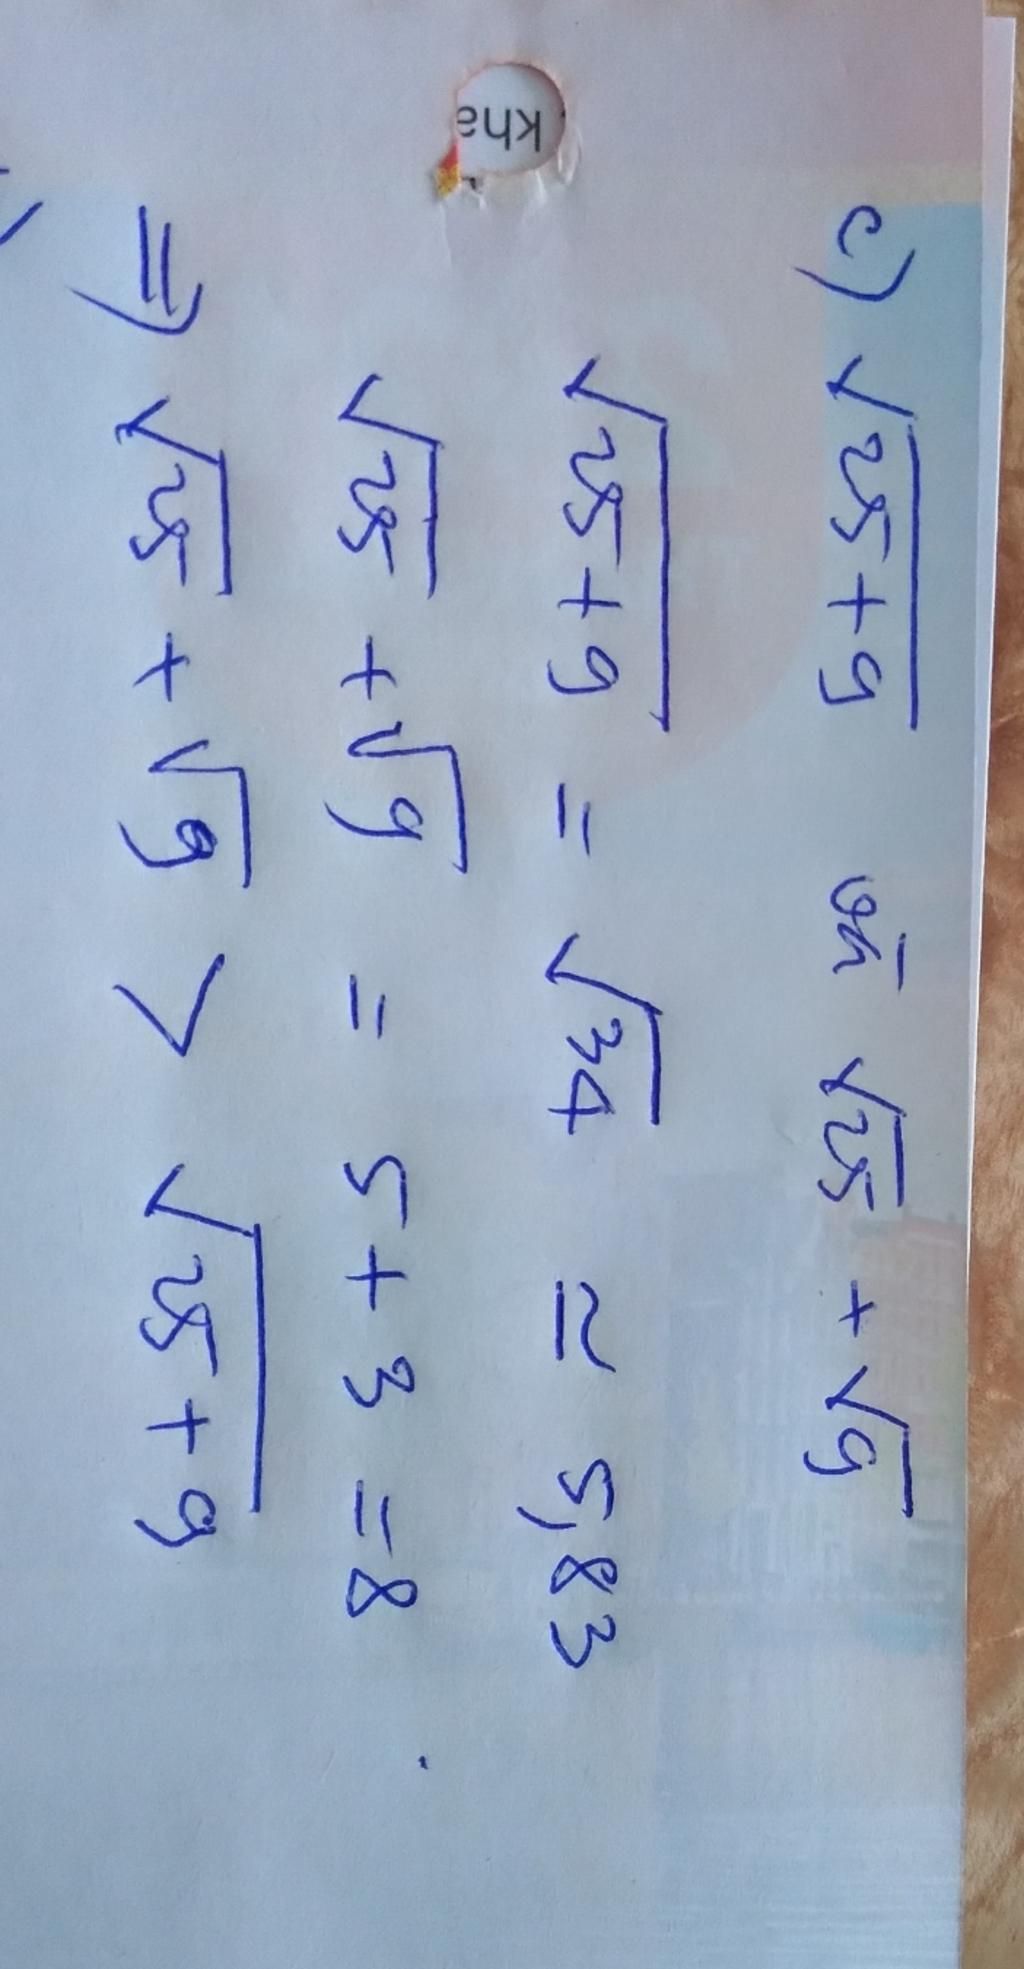 c) √(25+9) và √25 + √9
√(25+9) = √34 ≃ 5,83
√25 + √9 = 5 + 3 = 8
=> √25 + √9 > √(25+9)
kha